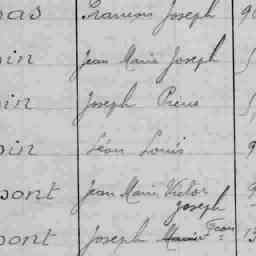 nas Francois Joseph 9
in Jean Marie Joseph
in Joseph Pierre
in Léon Louis 9
pont Jean Marie Victor
Joseph
pont Joseph Marie Fcois 13